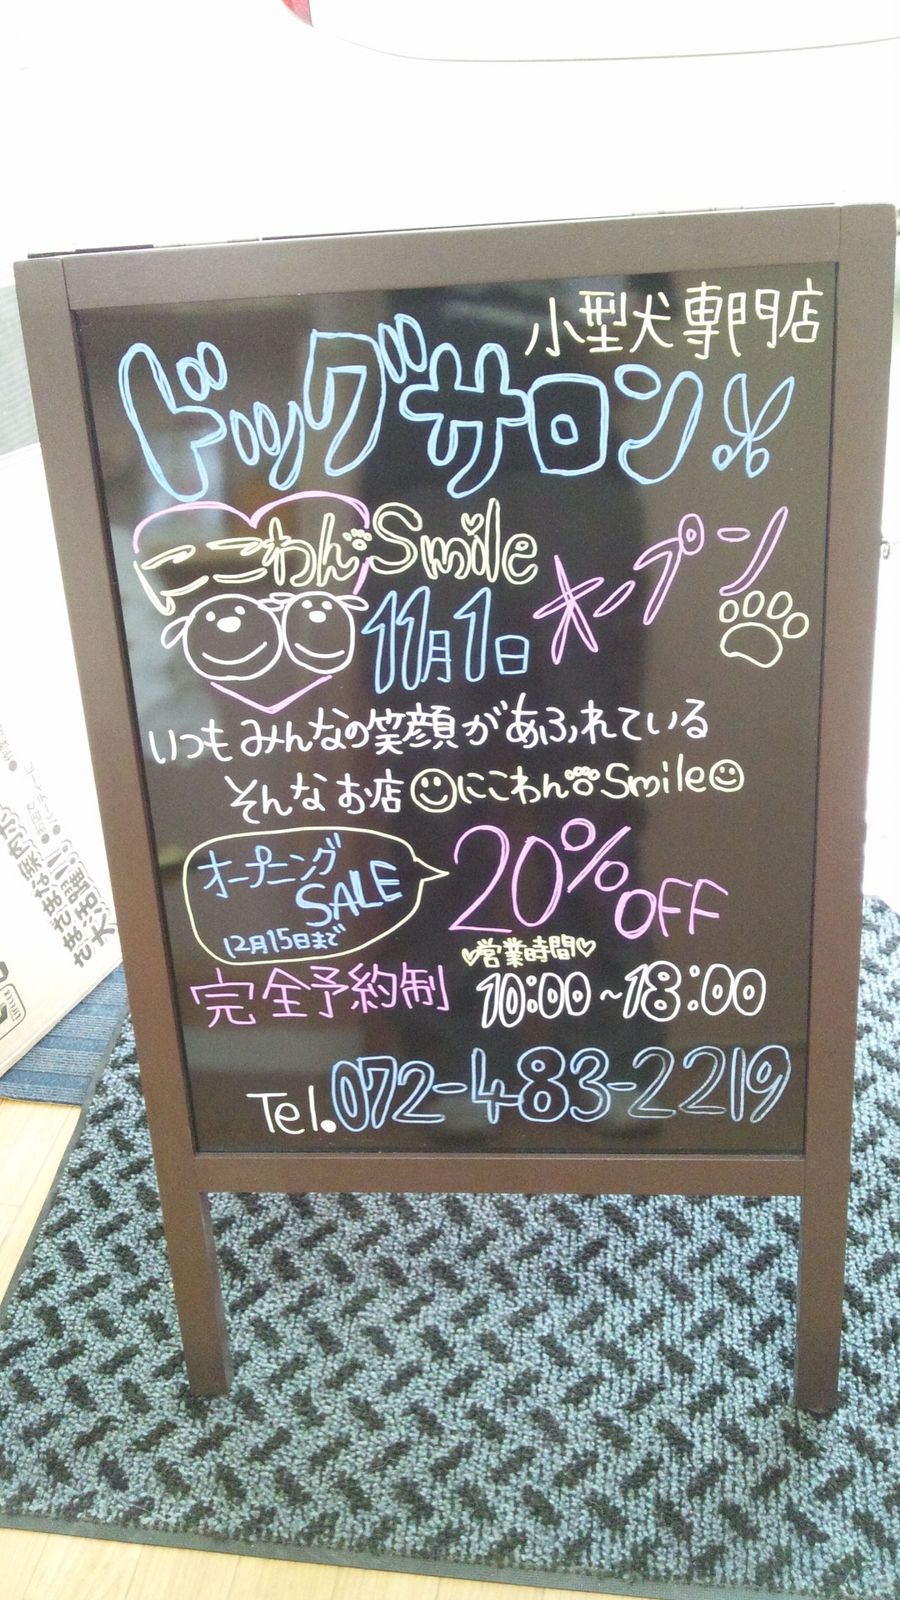 小型犬専門店
ドッグサロン
にこわん Smile
11月1日 オープン
いつもみんなの笑顔があふれている
そんなお店 にこわん Smile
オープニング
SALE
12月15日まで
20%OFF
完全予約制
♡営業時間♡
10:00~18:00
Tel.072-483-2219